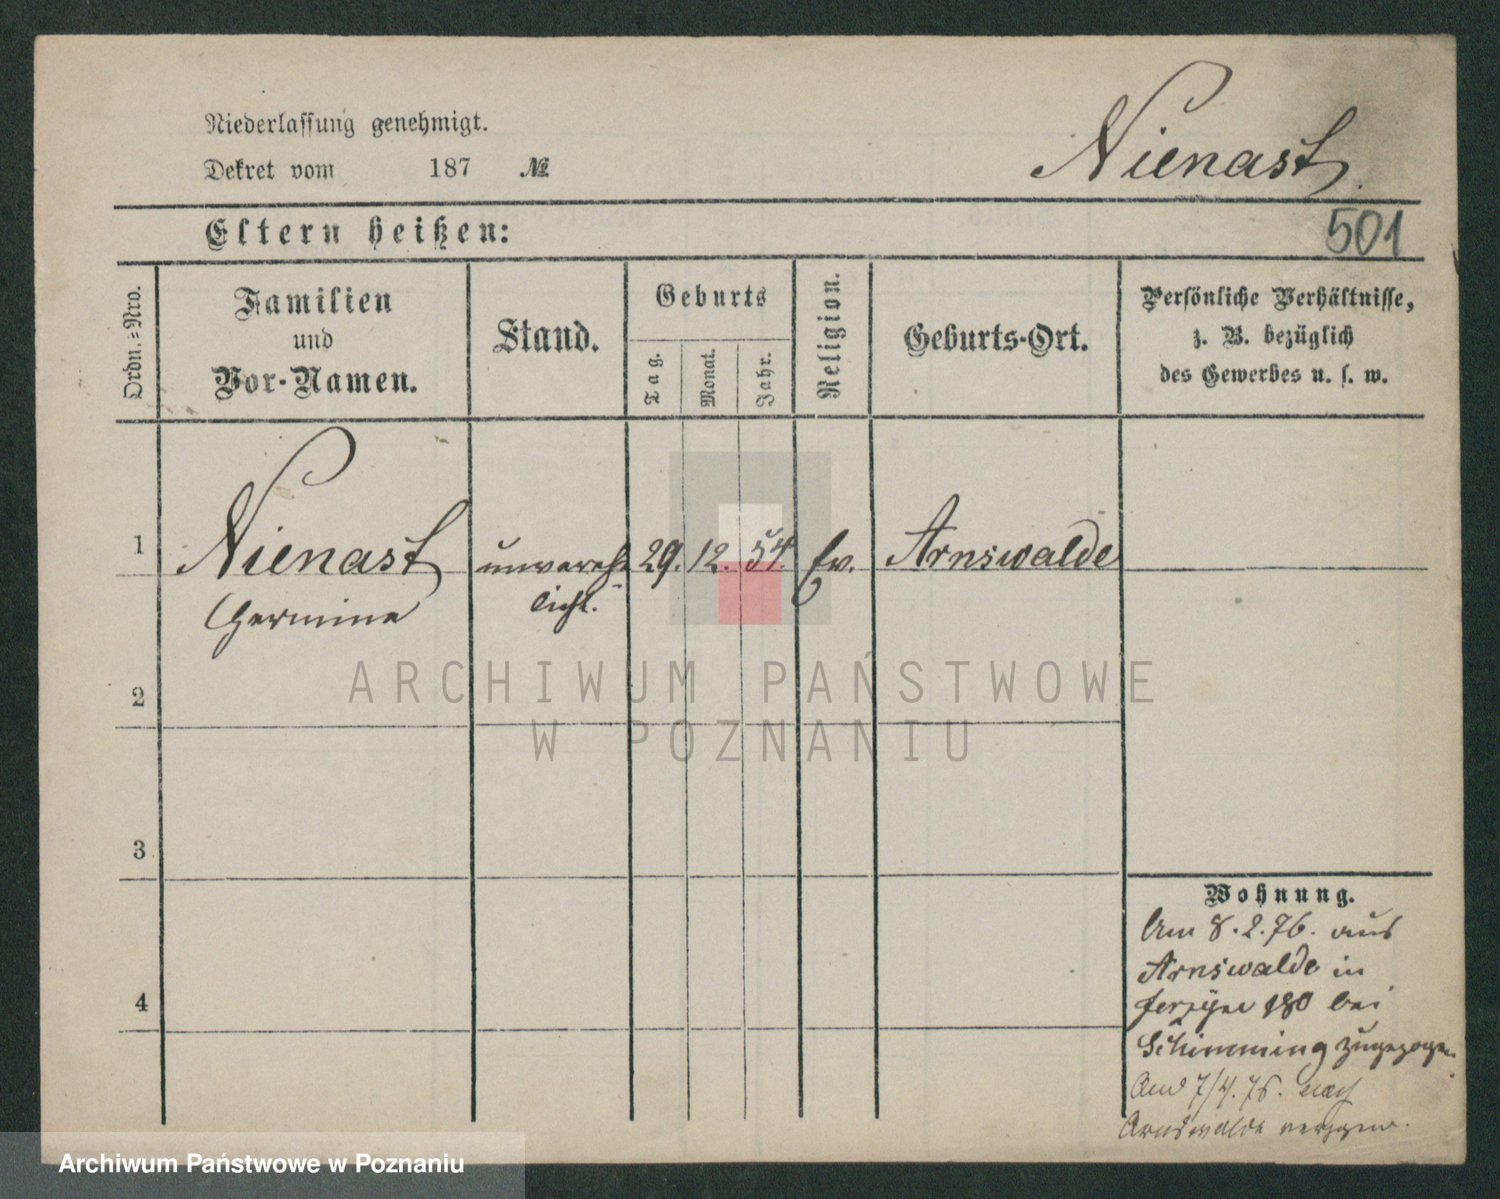 Niederlassung genehmigt.
Dekret vom 187 №
Nienast.
501
Eltern heißen:
Ordn.=Nro.
Familien
und
Vor-Namen.
Stand.
Geburts
Tag.
Monat.
Jahr.
Religion.
Geburts-Ort.
Persönliche Verhältnisse,
z. B. bezüglich
des Gewerbes u. s. w.
1 Nienast unvereh= 29. 12. 54. Ev. Arnswalde
Hermine licht.
2
3
4
Wohnung.
Am 8.2.76. aus
Arnswalde in
Jerzyce 180 bei
Schimming zugezogen.
Am 7/4. 76. nach
Arnswalde verzogen.
ARCHIWUM PAŃSTWOWE
W POZNANIU
Archiwum Państwowe w Poznaniu